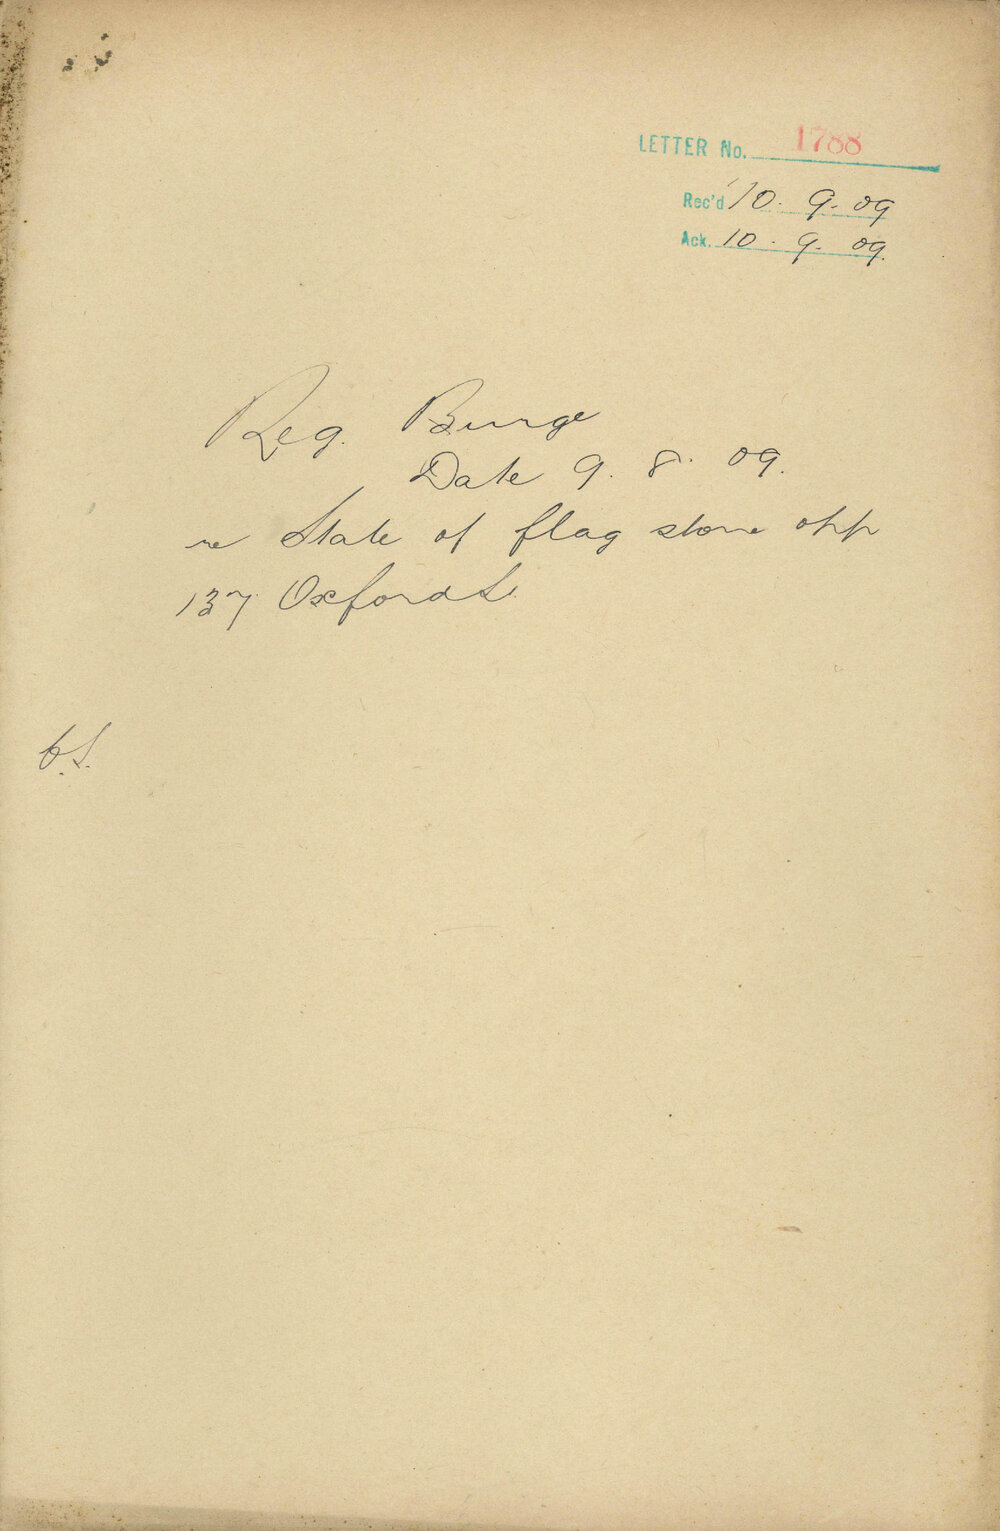 LETTER No. 1788
Rec'd 10. 9. 09
Ack. 10. 9. 09.
Reg. Burge
Date 9. 8. 09.
re State of flag stone opp
137 Oxford St.
C.S.